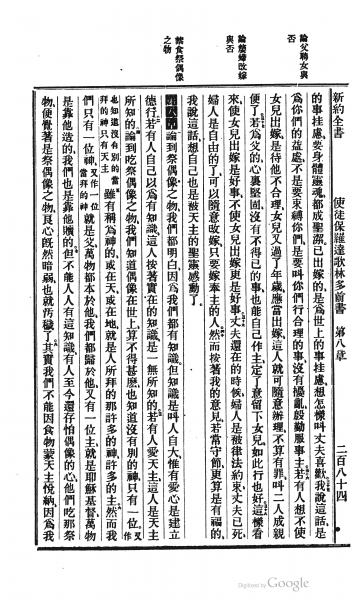 新約全書
使徒保羅達歌林多前書
第八章
二百八十四
論父聘女與否
論嫠婦改嫁與否
禁食祭偶像之物
的事挂慮、要身體靈魂、都成聖潔、已出嫁的、是爲世上的事挂慮、想怎樣叫丈夫喜歡、我說這話、是
爲你們的益處、不是要束縛你們、是要叫你們行合理的事、沒有攪亂、殷勤服事主、若有人想不使
女兒出嫁、是待他不合理、女兒又過了年歲、應當出嫁、這人就可隨意辦理、不算有罪、叫二人成親
便了、若爲父的心裏堅固、沒有不得已的事、也能自己作主、定了意留下女兒、如此行也好、這樣看
來、使女兒出嫁是好事、不使女兒出嫁更是好事、丈夫還在的時候、婦人是被律法約束、丈夫已死、
婦人是自由的了、可以隨意改嫁、只要嫁奉主的人、然而按著我的意見、若當守節、更算是有福的、
我說這話、想自己也是被天主的聖靈感動了、
第八章 論到祭偶像之物、我們都明白、因爲我們都有知識、但知識是叫人自大、惟有愛心是建立
德行、若有人自己以爲有知識、這人是按著實在的知識、是一無所知的、若有人愛天主、這人是天主
所知的、論到吃祭偶像之物、我們知道偶像在世上、算不得甚麽、也知道沒有別的神、只有一位、又作
也知道沒有別的當拜的神只有天主 雖有稱爲神的、或在天、或在地、就是人所拜的那許多的神、許多的主、然而我
們只有一位神、又作一位當拜的神 就是父、萬物都本於他、我們都歸於他、又有一位主、就是耶穌基督、萬物
是靠他造的、我們也是靠他贖的、但不能人人有這知識、有人至今還存怕偶像的心、他們吃那祭
物、便覺著是祭偶像之物、良心旣然暗弱、也就汚穢了、其實我們不能因食物蒙天主悅納、因爲我
Digitized by Google